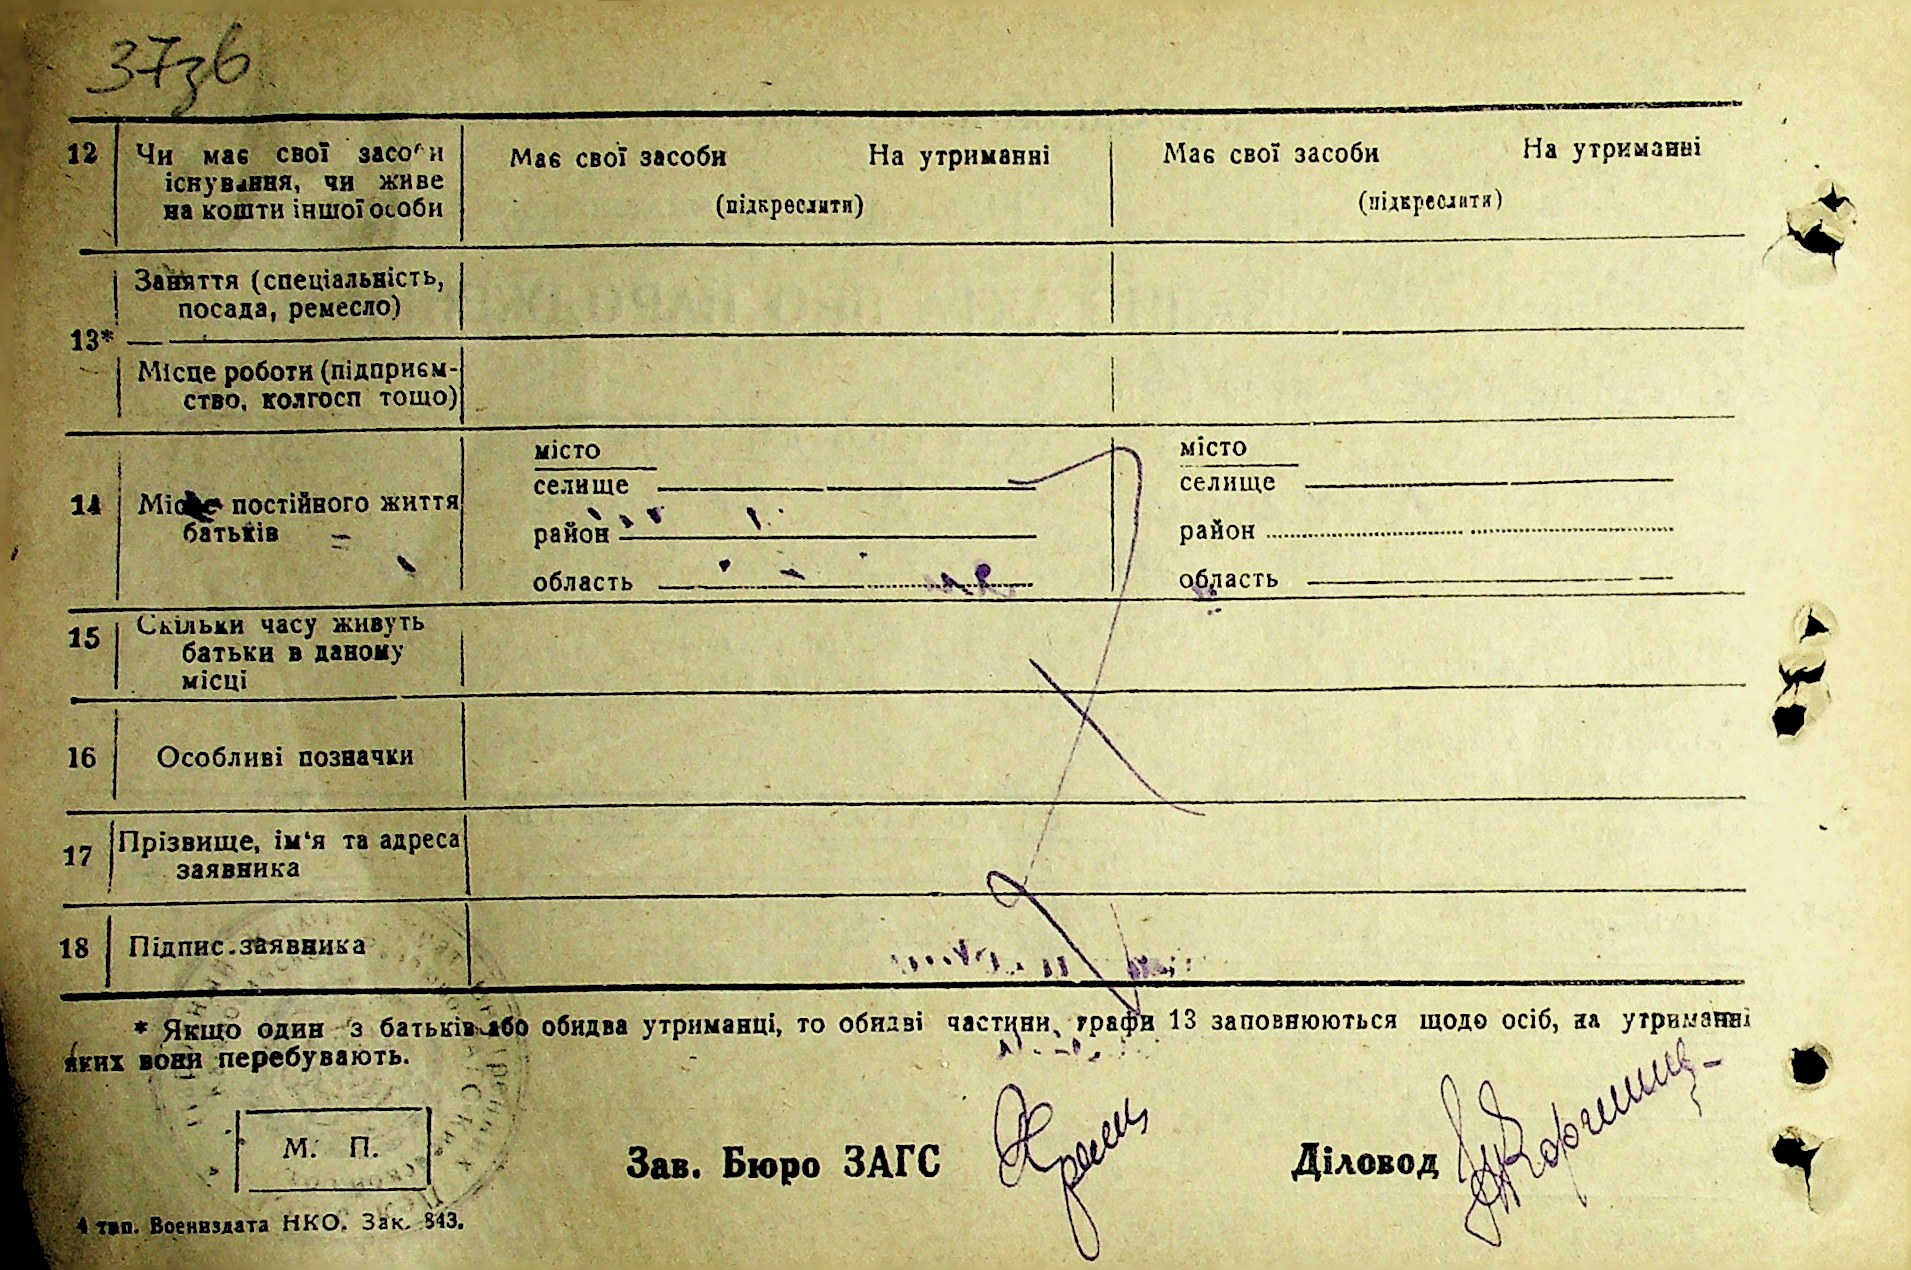 37зб
12 Чи має свої засоби Має свої засоби На утриманні Має свої засоби На утриманні
існування, чи живе
на кошти іншої особи (підкреслити) (підкреслити)
Заняття (спеціальність,
посада, ремесло)
13*
Місце роботи (підприєм-
ство, колгосп тощо)
місто місто
селище селище
14 Місце постійного життя
батьків район район
область область
15 Скільки часу живуть
батьки в даному
місці
16 Особливі позначки
17 Прізвище, ім'я та адреса
заявника
18 Підпис заявника
* Якщо один з батьків або обидва утриманці, то обидві частини, графи 13 заповнюються щодо осіб, на утриманні
яких вони перебувають.
М. П.
Зав. Бюро ЗАГС Діловод
4 тип. Воениздата НКО. Зак. 843.